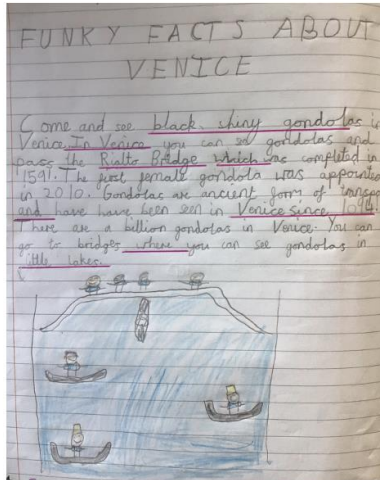 FUNKY FACTS ABOUT
VENICE
Come and see black, shiny gondolas in
Venice. In Venice you can see gondolas and
pass the Rialto Bridge which was completed in
1591. The first female gondola was appointed
in 2010. Gondolas are ancient form of transpo
and have have been seen in Venice since 1094.
There are a billion gondolas in Venice. You can
go to bridges where you can see gondolas in
little lakes.